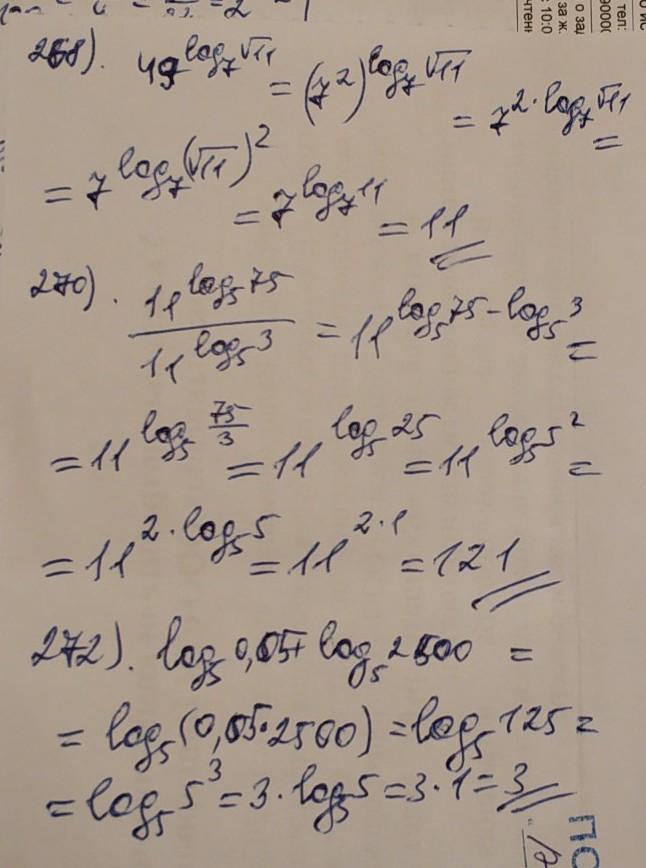 268). 49^{log_7 √11} = (7^2)^{log_7 √11} = 7^{2·log_7 √11} =
= 7^{log_7 (√11)^2} = 7^{log_7 11} = 11
270). \frac{11^{log_5 75}}{11^{log_5 3}} = 11^{log_5 75 - log_5 3} =
= 11^{log_5 \frac{75}{3}} = 11^{log_5 25} = 11^{log_5 5^2} =
= 11^{2·log_5 5} = 11^{2·1} = 121
272). log_5 0,05 + log_5 2500 =
= log_5 (0,05·2500) = log_5 125 =
= log_5 5^3 = 3·log_5 5 = 3·1 = 3
ПО